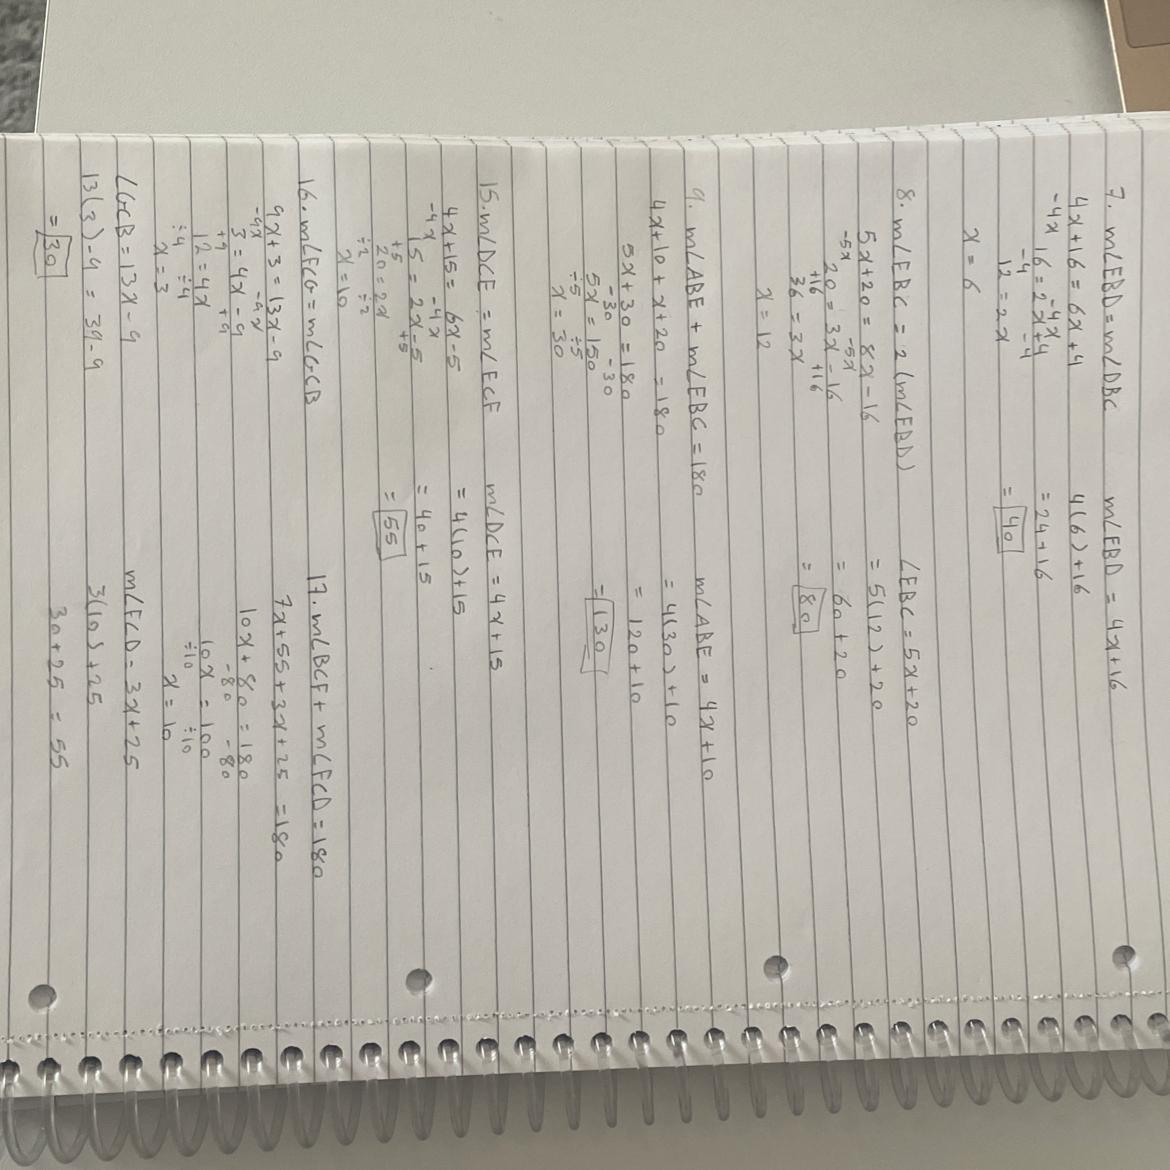 7. m∠EBD = m∠DBC
4x+16 = 6x+4
-4x -4x
16 = 2x+4
-4 -4
12 = 2x
x = 6
m∠EBD = 4x+16
4(6)+16
= 24+16
= 40
8. m∠EBC = 2(m∠EBD)
5x+20 = 8x-16
-5x -5x
20 = 3x-16
+16 +16
36 = 3x
x = 12
∠EBC = 5x+20
= 5(12)+20
= 60+20
= 80
9. m∠ABE + m∠EBC = 180
4x+10+x+20 = 180
5x+30 = 180
-30 -30
5x = 150
÷5 ÷5
x = 30
m∠ABE = 4x+10
= 4(30)+10
= 120+10
= 130
15. m∠DCE = m∠ECF
4x+15 = 6x-5
-4x -4x
15 = 2x-5
+5 +5
20 = 2x
÷2 ÷2
x = 10
m∠DCE = 4x+15
= 4(10)+15
= 40+15
= 55
16. m∠FCG = m∠GCB
9x+3 = 13x-9
-9x -9x
3 = 4x-9
+9 +9
12 = 4x
÷4 ÷4
x = 3
∠GCB = 13x-9
13(3)-9 = 39-9
= 30
17. m∠BCF + m∠FCD = 180
7x+55+3x+25 = 180
10x+80 = 180
-80 -80
10x = 100
÷10 ÷10
x = 10
m∠FCD = 3x+25
3(10)+25
30+25 = 55